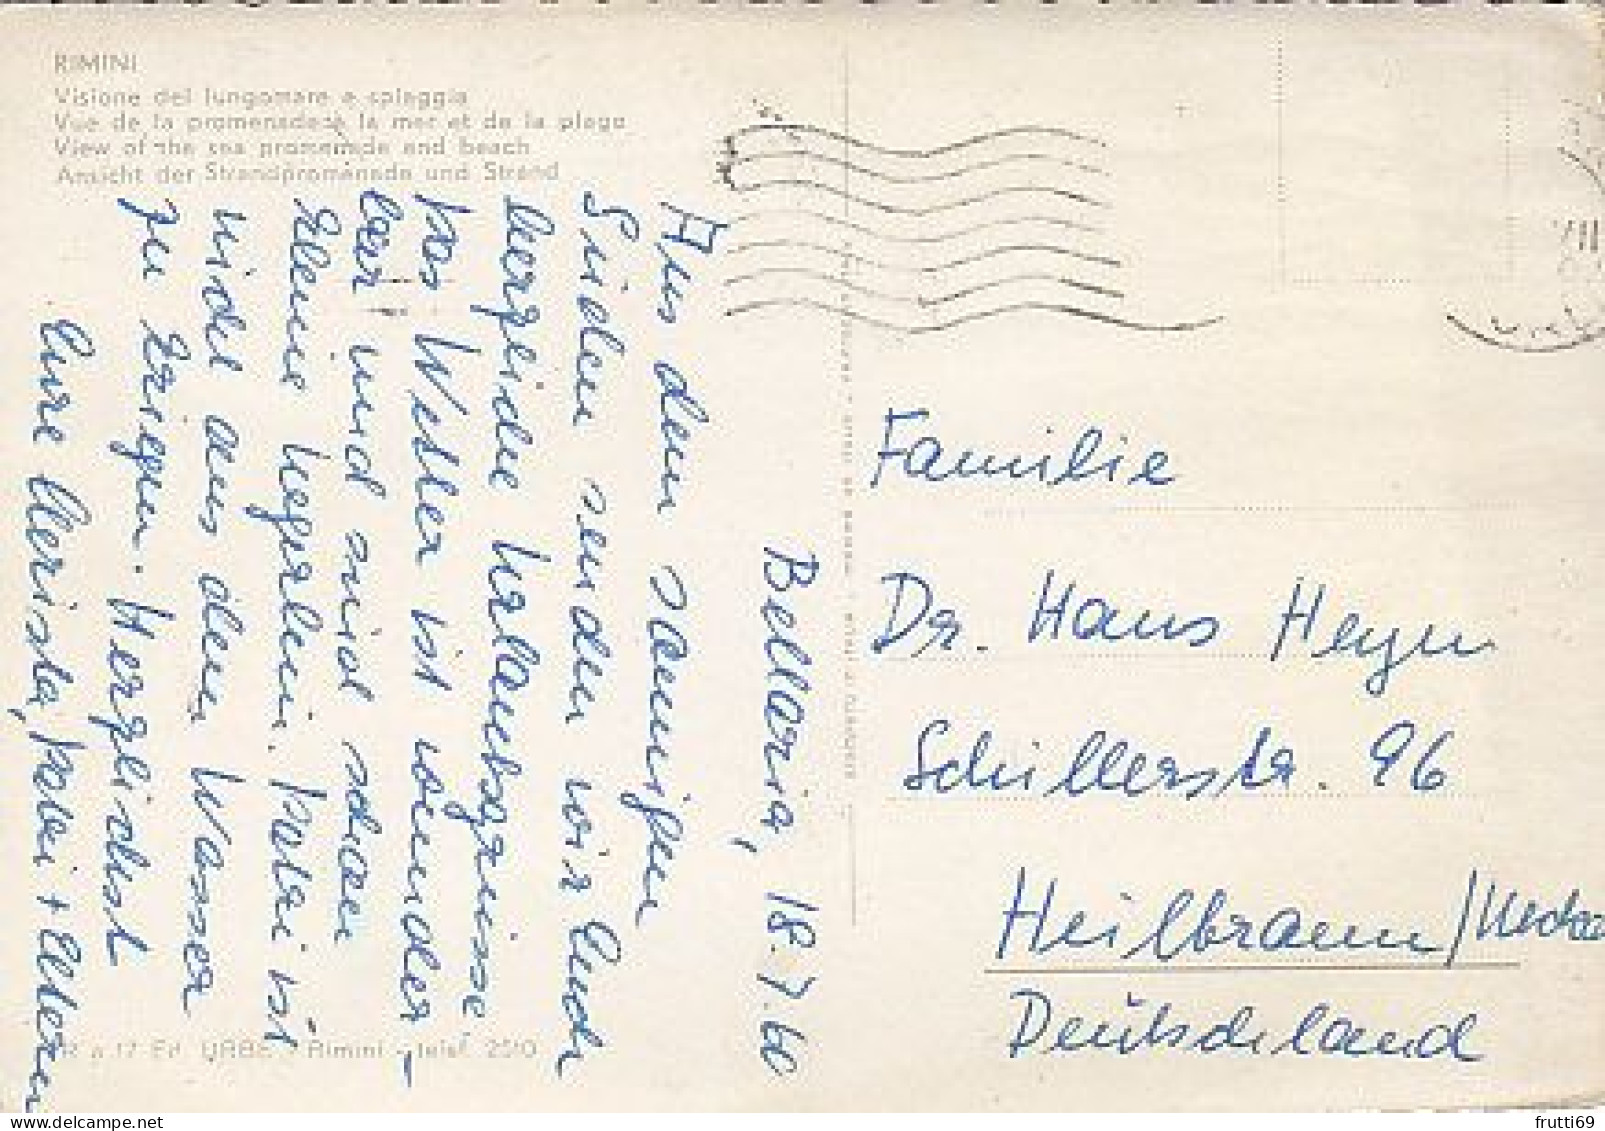 RIMINI
Visione del lungomare e spiaggia
Vue de la promenade à la mer et de la plage
View of the sea promenade and beach
Ansicht der Strandpromenade und Strand
Bellaria, 18.7.60
Aus dem sonnigen
Süden senden wir Euch
herzliche Urlaubsgrüsse.
Das Wetter ist wunder-
bar und wird sind schon
ist
nicht aus dem Wasser
zu kriegen. Herzlichst
Eure + Eltern
Familie
Dr. Hans Heyn
Schillerstr. 96
Heilbronn/Neckar
Deutschland
Ed. URBE Rimini - telef. 2510
VII
frutti69